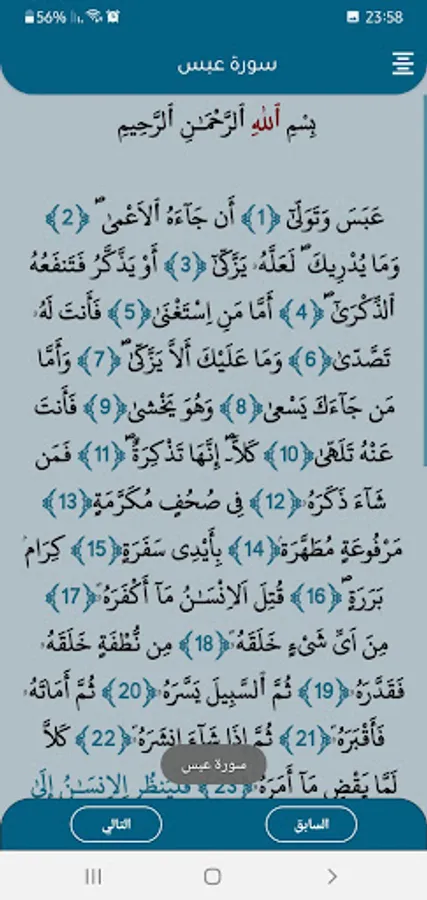 56% 23:58
سورة عبس
بِسْمِ اِ۬للَّهِ اِ۬لرَّحْمَٰنِ اِ۬لرَّحِيمِ
عَبَسَ وَتَوَلّ۪يٰٓ ﴿1﴾ أَن جَآءَهُ اُ۬لَاعْم۪يٰۖ ﴿2﴾
وَمَا يُدْرِيكَ لَعَلَّهُۥ يَزَّكّ۪يٰٓ ﴿3﴾ أَوْ يَذَّكَّرُ فَتَنفَعُهُ
اُ۬لذِّكْر۪يٰٓۖ ﴿4﴾ أَمَّا مَنِ اِ۪سْتَغْن۪يٰ ﴿5﴾ فَأَنتَ لَهُۥ
تَصَّدّ۪يٰ ﴿6﴾ وَمَا عَلَيْكَ أَلَّا يَزَّكّ۪يٰۖ ﴿7﴾ وَأَمَّا
مَن جَآءَكَ يَسْع۪يٰ ﴿8﴾ وَهُوَ يَخْش۪يٰ ﴿9﴾ فَأَنتَ
عَنْهُ تَلَهّ۪يٰ ﴿10﴾ كَلَّآۖ إِنَّهَا تَذْكِرَةٞۖ ﴿11﴾ فَمَن
شَآءَ ذَكَرَهُۥ ﴿12﴾ فِى صُحُفٖ مُكَرَّمَةٖ ﴿13﴾
مَرْفُوعَةٖ مُطَهَّرَةِۢ ﴿14﴾ بِأَيْدِى سَفَرَةٖ ﴿15﴾ كِرَامِۢ
بَرَرَةٖۖ ﴿16﴾ قُتِلَ اَ۬لِانْسَٰنُ مَآ أَكْفَرَهُۥ ﴿17﴾
مِنَ اَىِّ شَىْءٍ خَلَقَهُۥ ﴿18﴾ مِن نُّطْفَةٍ خَلَقَهُۥ
فَقَدَّرَهُۥ ﴿19﴾ ثُمَّ اَ۬لسَّبِيلَ يَسَّرَهُۥ ﴿20﴾ ثُمَّ أَمَاتَهُۥ
فَأَقْبَرَهُۥ ﴿21﴾ ثُمَّ إِذَا شَآءَ انشَرَهُۥ ﴿22﴾ كَلَّا
لَمَّا يَقْضِ مَآ أَمَرَهُۥ ﴿23﴾ فَلْيَنظُرِ اِ۬لِانسَٰنُ إِلَىٰ
سورة عبس
السابق
التالي